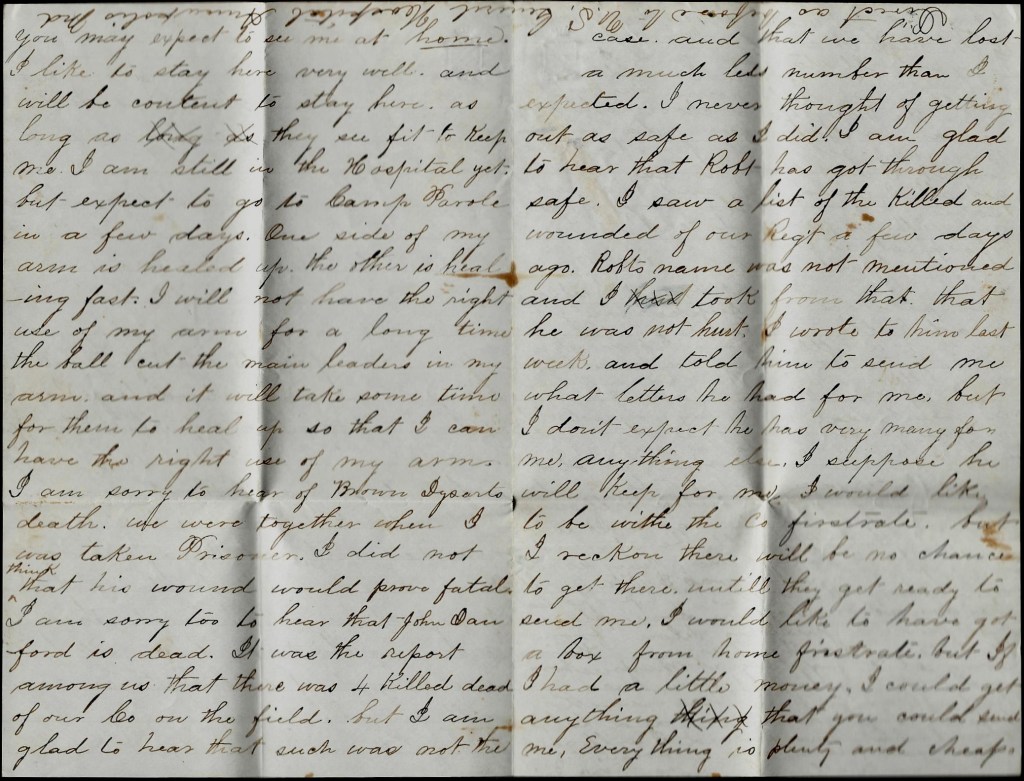 Direct as before to U.S. Hospital Annapolis Md
you may expect to see me at home.
I like to stay here very well. and
will be content to stay here. as
long as long as they see fit to keep
me. I am still in the Hospital yet.
but expect to go to Camp Parole
in a few days. One side of my
arm is healed up. the other is heal
-ing fast. I will not have the right
use of my arm for a long time
the ball cut the main leaders in my
arm. and it will take some time
for them to heal up so that I can
have the right use of my arm.
I am sorry to hear of Brown Dyserts
death. we were together when I
was taken Prisoner. I did not
think
that his wound would prove fatal.
I am sorry too to hear that John Dan
ford is dead. It was the report
among us that there was 4 killed dead
of our Co on the field. but I am
glad to hear that such was not the
case. and that we have lost
a much less number than I
expected. I never thought of getting
out as safe as I did. I am glad
to hear that Robt has got through
safe. I saw a list of the killed and
wounded of our Reg't a few days
ago. Robts name was not mentioned
and I took from that. that
he was not hurt. I wrote to him last
week. and told him to send me
what letters he had for me. but
I don't expect he has very many for
me. anything else. I suppose he
will keep for me. I would like
to be withe the Co firstrate. but
I reckon there will be no chance
to get there. untill they get ready to
send me. I would like to have got
a box from home fristrate. but If
I had a little money. I could get
anything thing that you could send
me. Everything is plenty and cheap.